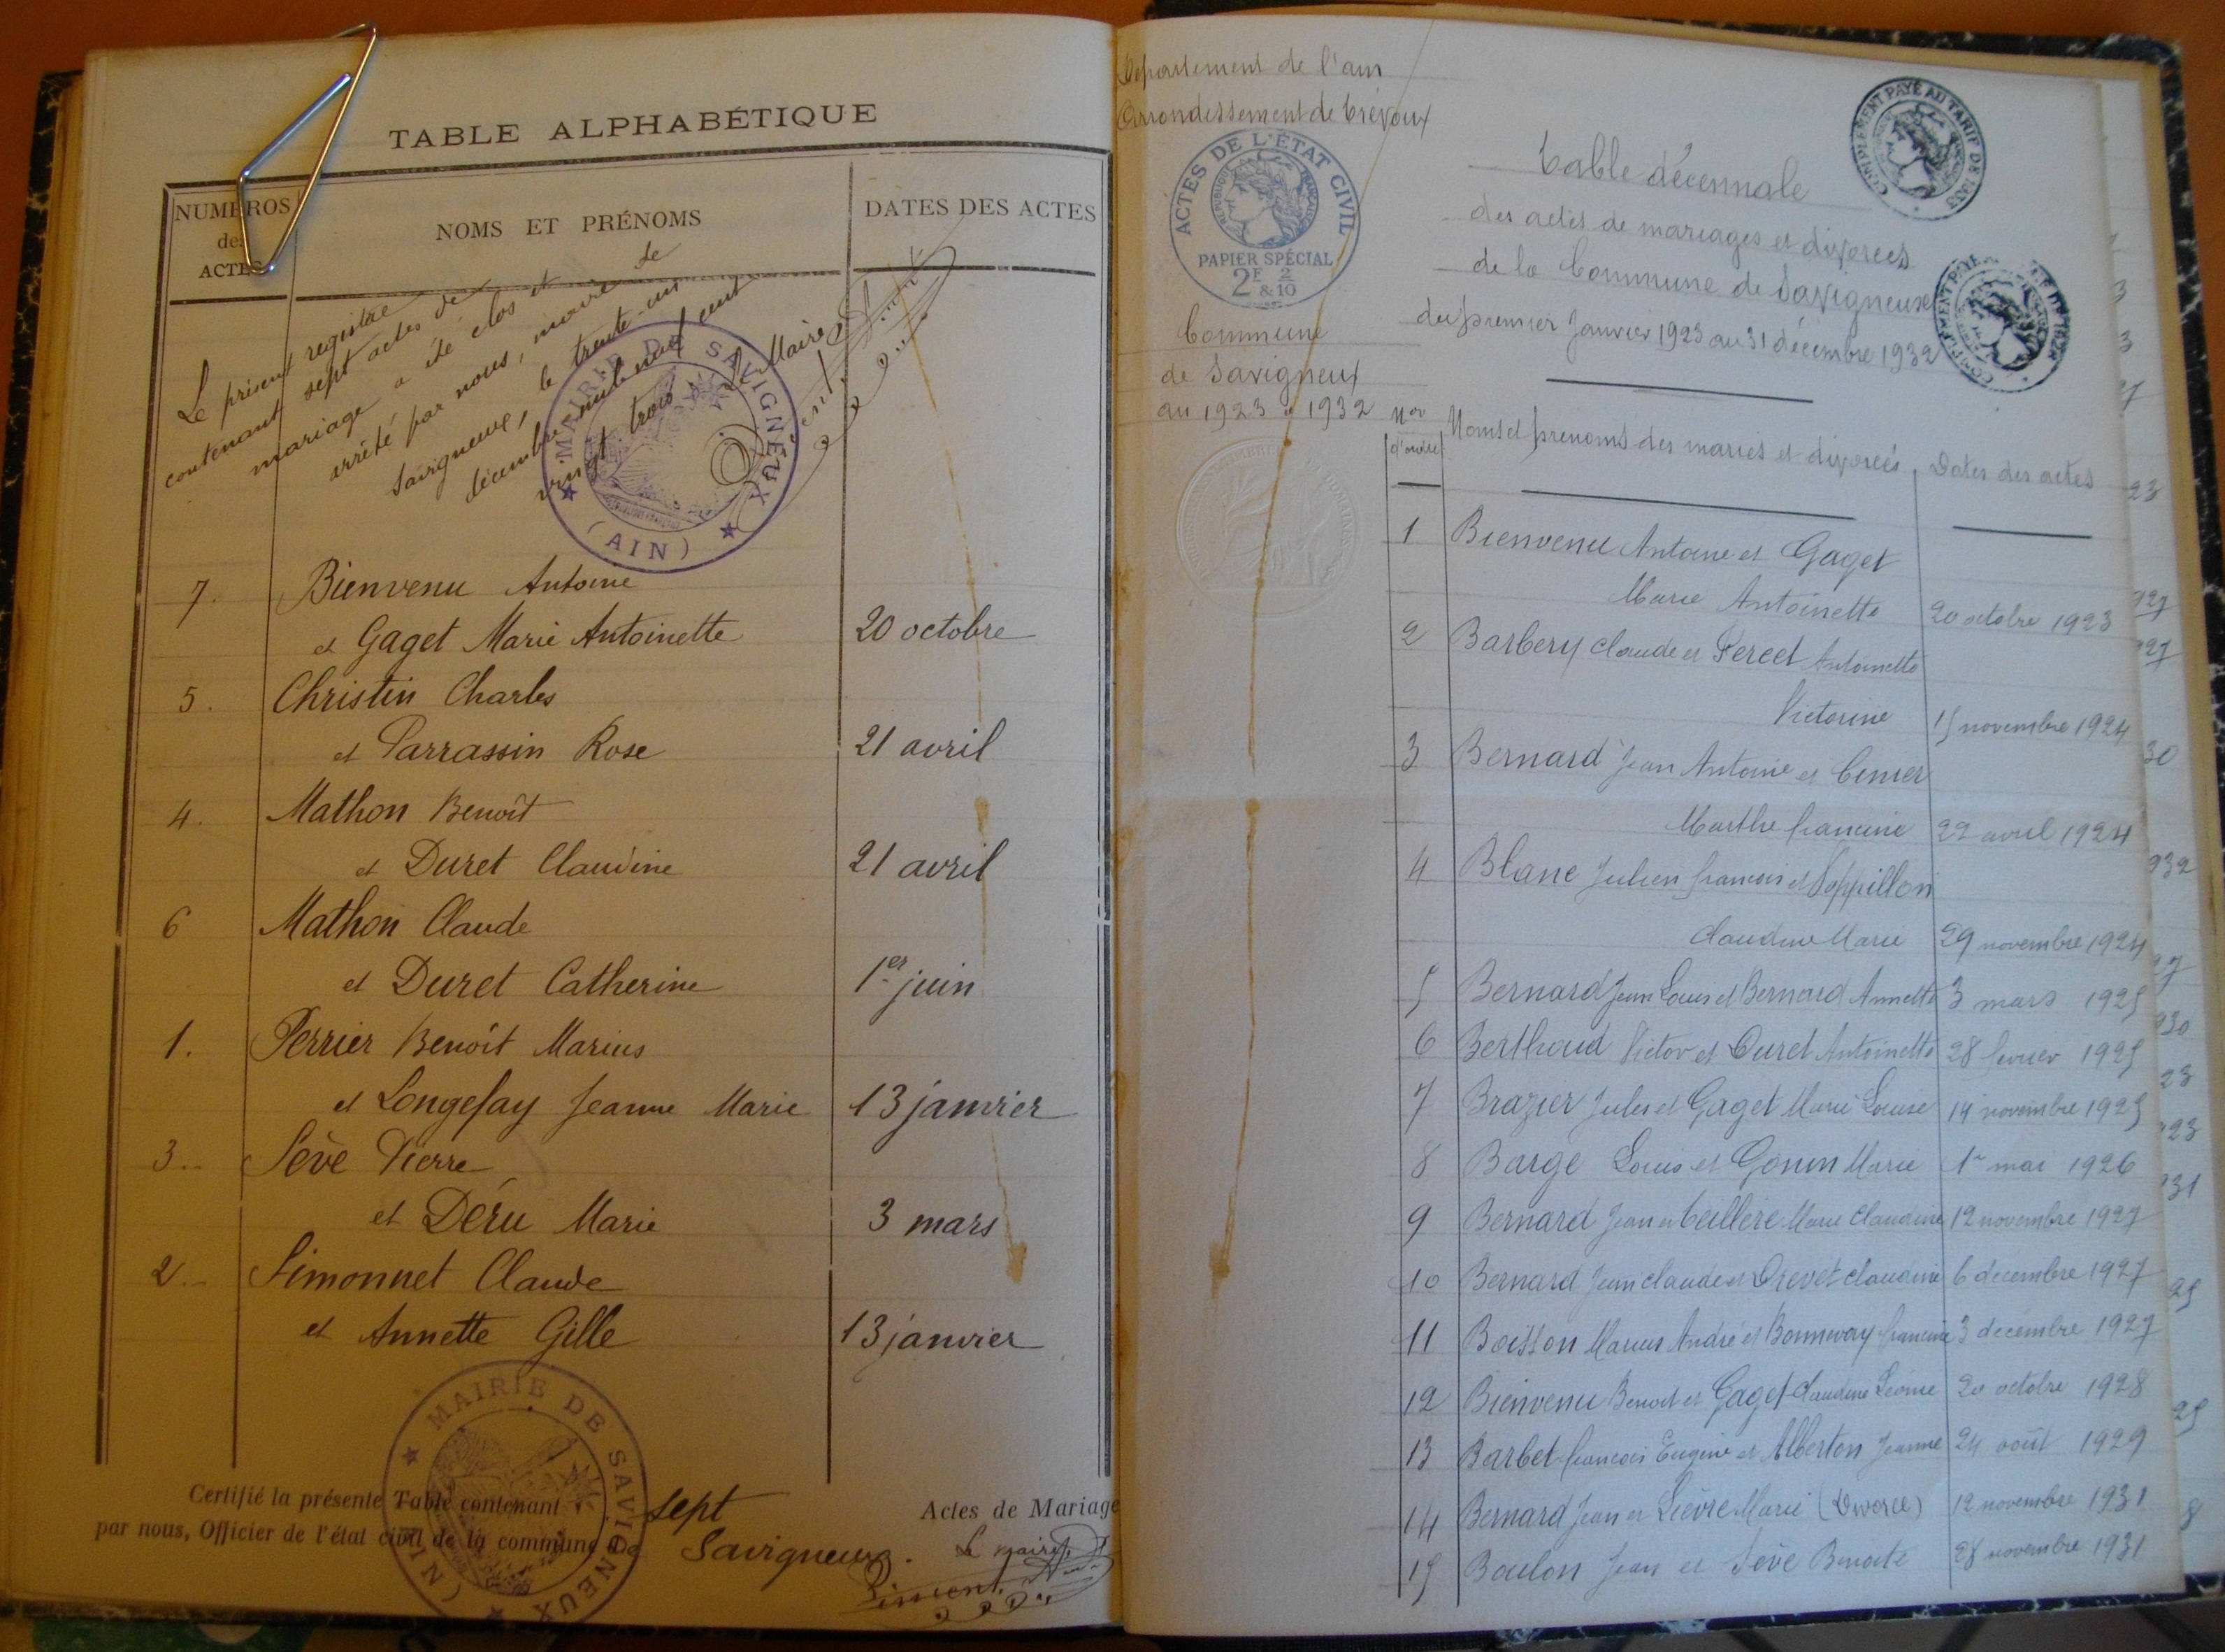 TABLE ALPHABÉTIQUE
NUMÉROS
des
ACTES
NOMS ET PRÉNOMS
DATES DES ACTES
Le présent registre
contenant sept actes de
mariage a été clos et
arrêté par nous, maire de
Savigneux, le trente-un
décembre mil neuf cent
vingt trois Le Maire
MAIRIE DE SAVIGNEUX
(AIN)
7. Bienvenu Antoine
et Gaget Marie Antoinette 20 octobre
5. Christin Charles
et Parrassin Rose 21 avril
4. Mathon Benoît
et Duret Claudine 21 avril
6 Mathon Claude
et Duret Catherine 1er juin
1. Perrier Benoît Marius
et Longefay Jeanne Marie 13 janvier
3. Sève Pierre
et Déru Marie 3 mars
2. Simonnet Claude
et Annette Gille 13 janvier
MAIRIE DE SAVIGNEUX
(AIN)
Certifié la présente Table contenant sept Actes de Mariage
par nous, Officier de l'état civil de la commune de Savigneux. Le maire
Departement de l'ain
Arrondissement de Trévoux
ACTES DE L'ÉTAT CIVIL
RÉPUBLIQUE FRANÇAISE
PAPIER SPÉCIAL
2F & 2/10
Commune
de Savigneux
an 1923 a 1932
COMPLÉMENT PAYÉ AU TARIF DE
Table décennale
des actes de mariages et divorces
de la Commune de Savigneux
du premier Janvier 1923 au 31 décembre 1932
COMPLÉMENT PAYÉ
Nos
d'ordre
Noms et prenoms des mariés et divorcés
Dates des actes
1 Bienvenu Antoine et Gaget
Marie Antoinette 20 octobre 1923
2 Barbery Claude et Percet Antoinette
Victorine 15 novembre 1924
3 Bernard Jean Antoine et
Marthe francine 22 avril 1924
4 Blanc Julien francois et Poppillon
Claudine Marie 29 novembre 1924
5 Bernard Jean Louis et Bernard Annette 3 mars 1925
6 Berthoud Victor et Duret Antoinette 28 fevrier 1925
7 Brazier Jules et Gaget Marie Louise 14 novembre 1925
8 Barge Louis et Gonin Marie 1er mai 1926
9 Bernard Jean et Marie Claudine 12 novembre 1927
10 Bernard Jean Claude et Drevet Claudine 6 decembre 1927
11 Boisson Marius André et Bonnevay francine 3 décembre 1927
12 Bienvenu Benoit et Gaget Claudine Leonie 20 octobre 1928
13 Barbet francois Eugène et Alberton Jeanne 24 août 1929
14 Bernard Jean et Lièvre Marie (Divorce) 12 novembre 1931
15 Boulon Jean et Sève Benoite 28 novembre 1931